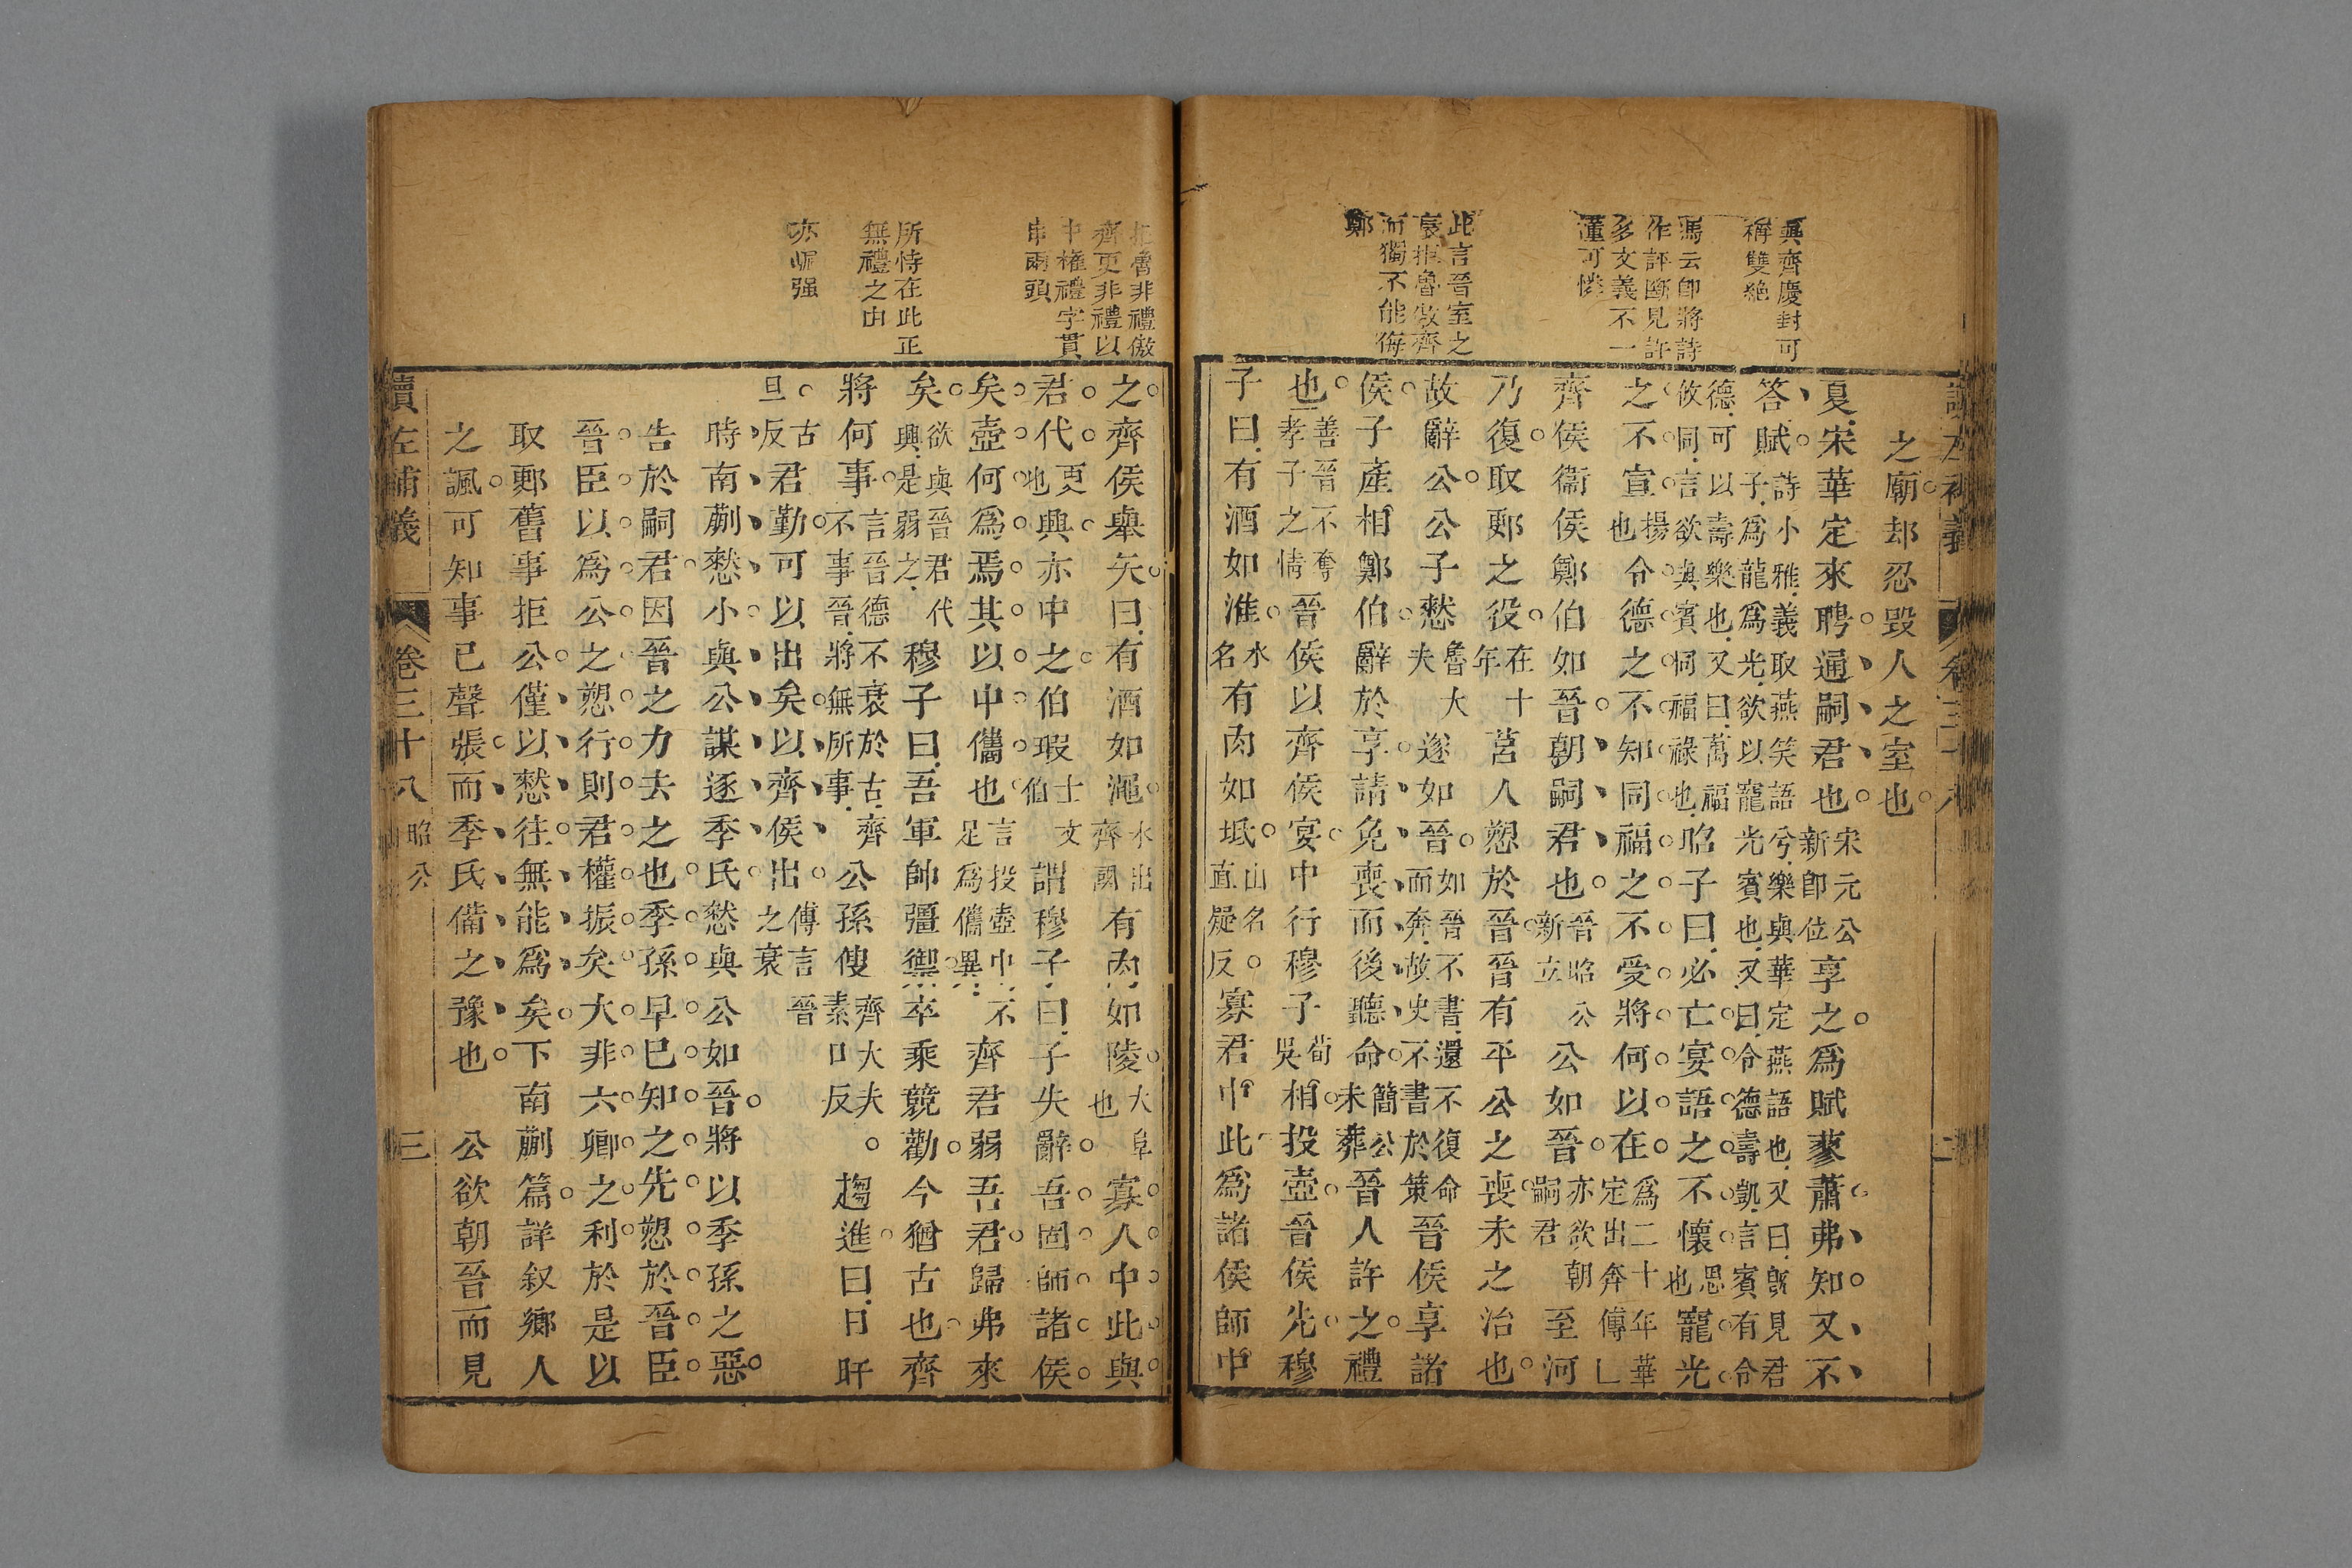 與齊慶封可
稱雙絶
馮云卽將詩
作評斷見許
多文義不一
此言晉室之
衰拒魯攺齊
而獨不能侮
鄭
之廟却忍毀人之室也
夏宋華定來聘通嗣君也宋元公新卽位享之爲賦蓼蕭弗知又不
答賦詩小雅義取燕笑語兮樂與華定燕語也又曰旣見君子爲龍爲光欲以寵光賓也又曰令德壽凱言賓有令
德可以壽樂也又曰萬福攸同言欲與賓同福祿也昭子曰必亡宴語之不懷思也寵光
之不宣揚也令德之不知同福之不受將何以在爲二十年華定出奔傳
齊侯衞侯鄭伯如晉朝嗣君也晉昭公新立公如晉亦欲朝嗣君至河
乃復取郠之役在十年莒人愬於晉晉有平公之喪未之治也
故辭公公子憖魯大夫遂如晉如晉不書還不復命而奔故史不書於策晉侯享諸
侯子產相鄭伯辭於享請免喪而後聽命簡公未葬晉人許之禮
也善晉不奪孝子之情晉侯以齊侯宴中行穆子荀吳相投壺晉侯先穆
子曰有酒如淮水名有肉如坻山名直疑反寡君中此爲諸侯師中
齊更非禮以
中權禮字貫
串兩頭
所恃在此正
無禮之由
亦崛强
之齊侯舉矢曰有酒如澠水出齊國有肉如陵大阜也寡人中此與
君代更也興亦中之伯瑕士文伯謂穆子曰子失辭吾固師諸侯
矣壺何爲焉其以中儁也言投壺中不足爲儁異齊君弱吾君歸弗來
矣欲與晉君代興是弱之穆子曰吾軍帥彊禦卒乘競勸今猶古也齊
將何事言晉德不衰於古齊不事晉將無所事公孫傁齊大夫素口反趨進曰日旰
旦古反君勤可以出矣以齊侯出傳言晉之衰
時南蒯憖小與公謀逐季氏憖與公如晉將以季孫之惡
告於嗣君因晉之力去之也季孫早已知之先愬於晉臣
晉臣以爲公之愬行則君權振矣大非六卿之利於是以
取郠舊事拒公僅以憖往無能爲矣下南蒯篇詳叙鄉人
之諷可知事已聲張而季氏備之豫也　公欲朝晉而見
讀左補義　卷三十八 昭公　三